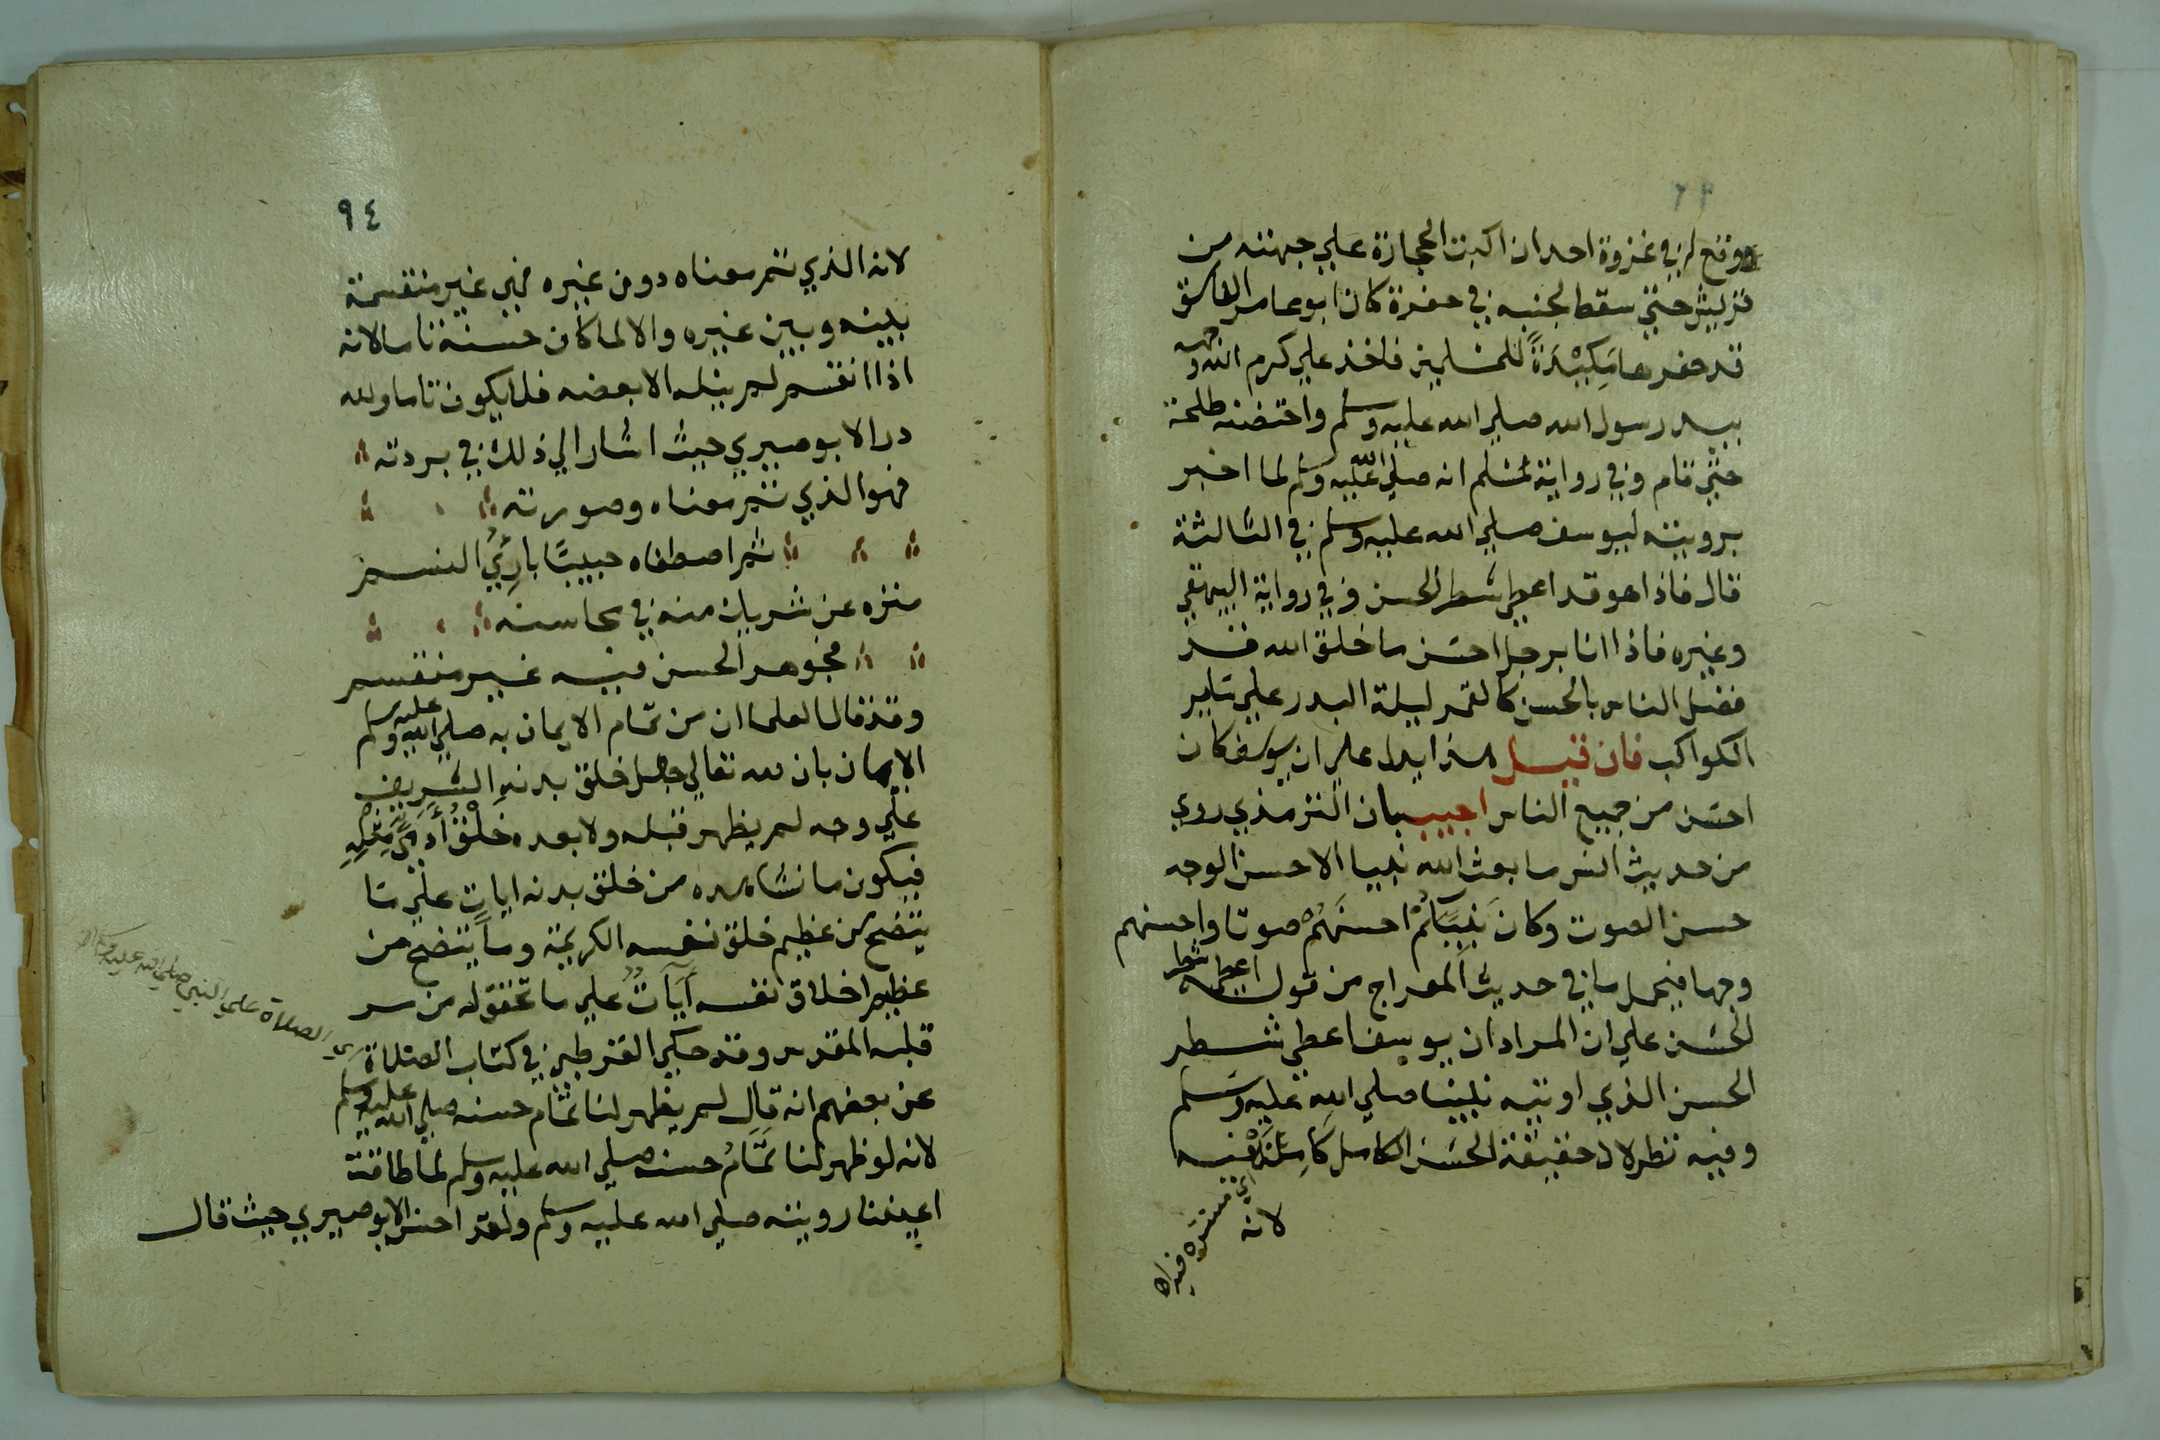 ووقع له في غزوة احد ان اكبت الحجارة علي جهته من
قريش حتي سقط لجنبه في حفرة كان ابو عامر الفاسق
قد حفرها مَكِيْدَةً للمسلمين فاخذ علي كرم الله وجهه
بيد رسول الله صلي الله عليه وسلم واحتضنه طلحة
حتي قام وفي رواية لمسلم انه صلي الله عليه وسلم لما اخبر
برويته ليوسف صلي الله عليه وسلم في الثالثة
قال فاذا هو قد اعطي شطر الحسن وفي رواية البيهقي
وغيره فاذا انا برجل احسن ما خلق الله قد
فضل الناس بالحسن كالقمر ليلة البدر علي ساير
الكواكب فان قيل هذا يدل علي ان يوسف كان
احسن من جميع الناس اجيب بان الترمذي روي
من حديث انس ما بعث الله نبيا الا حسن الوجه
حسن الصوت وكان نَبِيُّكُمْ احسنَهُمْ صوتا واحسنهم
وجها فيحمل ما في حديث المعراج من قوله اعطي شطر
الحسن علي ان المراد ان يوسف اعطي شطر
الحسن الذي اوتيه نبينا صلي الله عليه وسلم
وفيه نظر لان حقيقة الحسن الكامل كَامِنَةٌ فيه
اي مستترة فيه اه
لانه
٩٤
لانه الذي تم معناه دون غيره فهي غير منقسمة
بينه وبين غيره والا لما كان حسنه تاما لانه
اذا انقسم لم ينله الا بعضه فلا يكون تاما ولله
در الابوصيري حيث اشار الي ذلك في بردته
فهو الذي تم معناه وصورته
ثم اصطفاه حبيبًا بارِئُ النسم
منزه عن شريك منه في محاسنه
فجوهر الحسن فيه غير منقسم
وقد قال العلما ان من تمام الايمان به صلي الله عليه وسلم
الايمان بان لله تعالي جعل خلق بدنه الشريف
علي وجه لم يظهر قبله ولا بعده خَلْقُ أدَمِيٍّ مِثْلِهِ
فيكون ما نشاهده من خلق بدنه ايات علي ما
يتضح من عظيم خلق نفسه الكريمة وما يتضح من
عظيم اخلاق نفسه آيَاتٌ علي ما تحقق له من سر
قلبه المقدس وقد حكي القرطبي في كتاب الصلاة
اي الصلاة علي النبي صلي الله عليه وسلم اه
عن بعضهم انه قال لم يظهر لنا تمام حسنه صلي الله عليه وسلم
لانه لو ظهر لنا تَمَامُ حسنه صلي الله عليه وسلم لما طاقت
اعيننا رويته صلي الله عليه وسلم ولقد احسن الابوصيري حيث قال